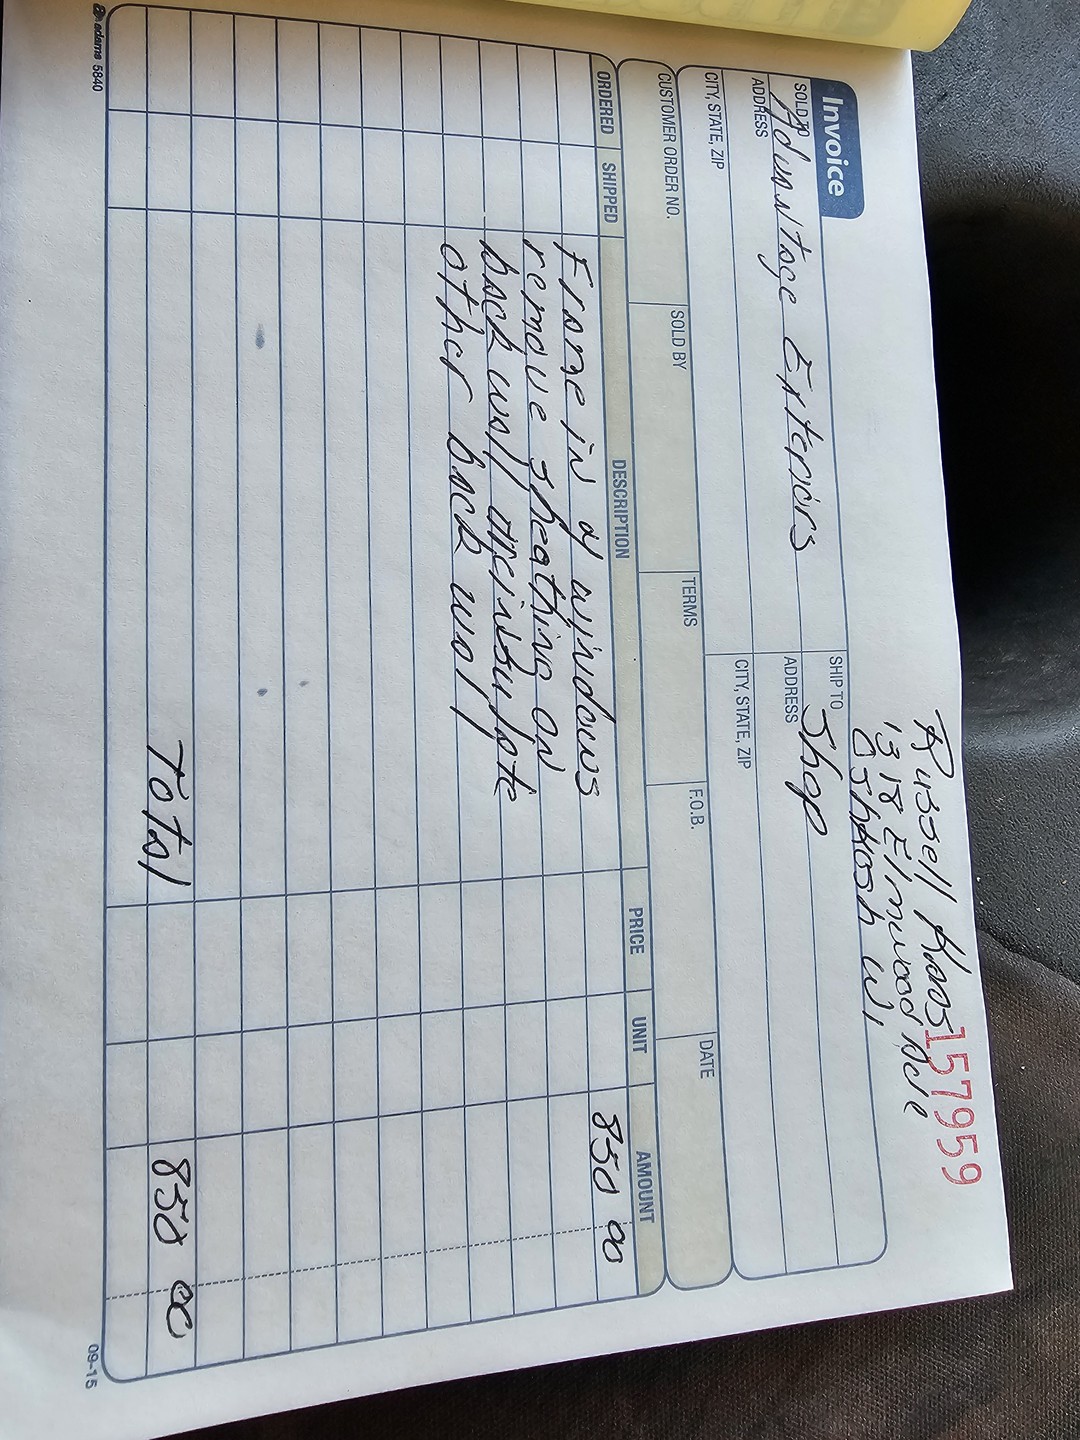 Russell Koos
157959
1318 Elmwood Ave
Oshkosh Wi,
Invoice
SOLD TO Advantage Exteriors
SHIP TO Shop
ADDRESS
ADDRESS
CITY, STATE, ZIP
CITY, STATE, ZIP
CUSTOMER ORDER NO. SOLD BY TERMS F.O.B. DATE
ORDERED SHIPPED DESCRIPTION PRICE UNIT AMOUNT
Frame in 4 windows 850 00
remove sheathing on
back wall reinsulate
other back wall
Total 850 00
adams 5840
09-15